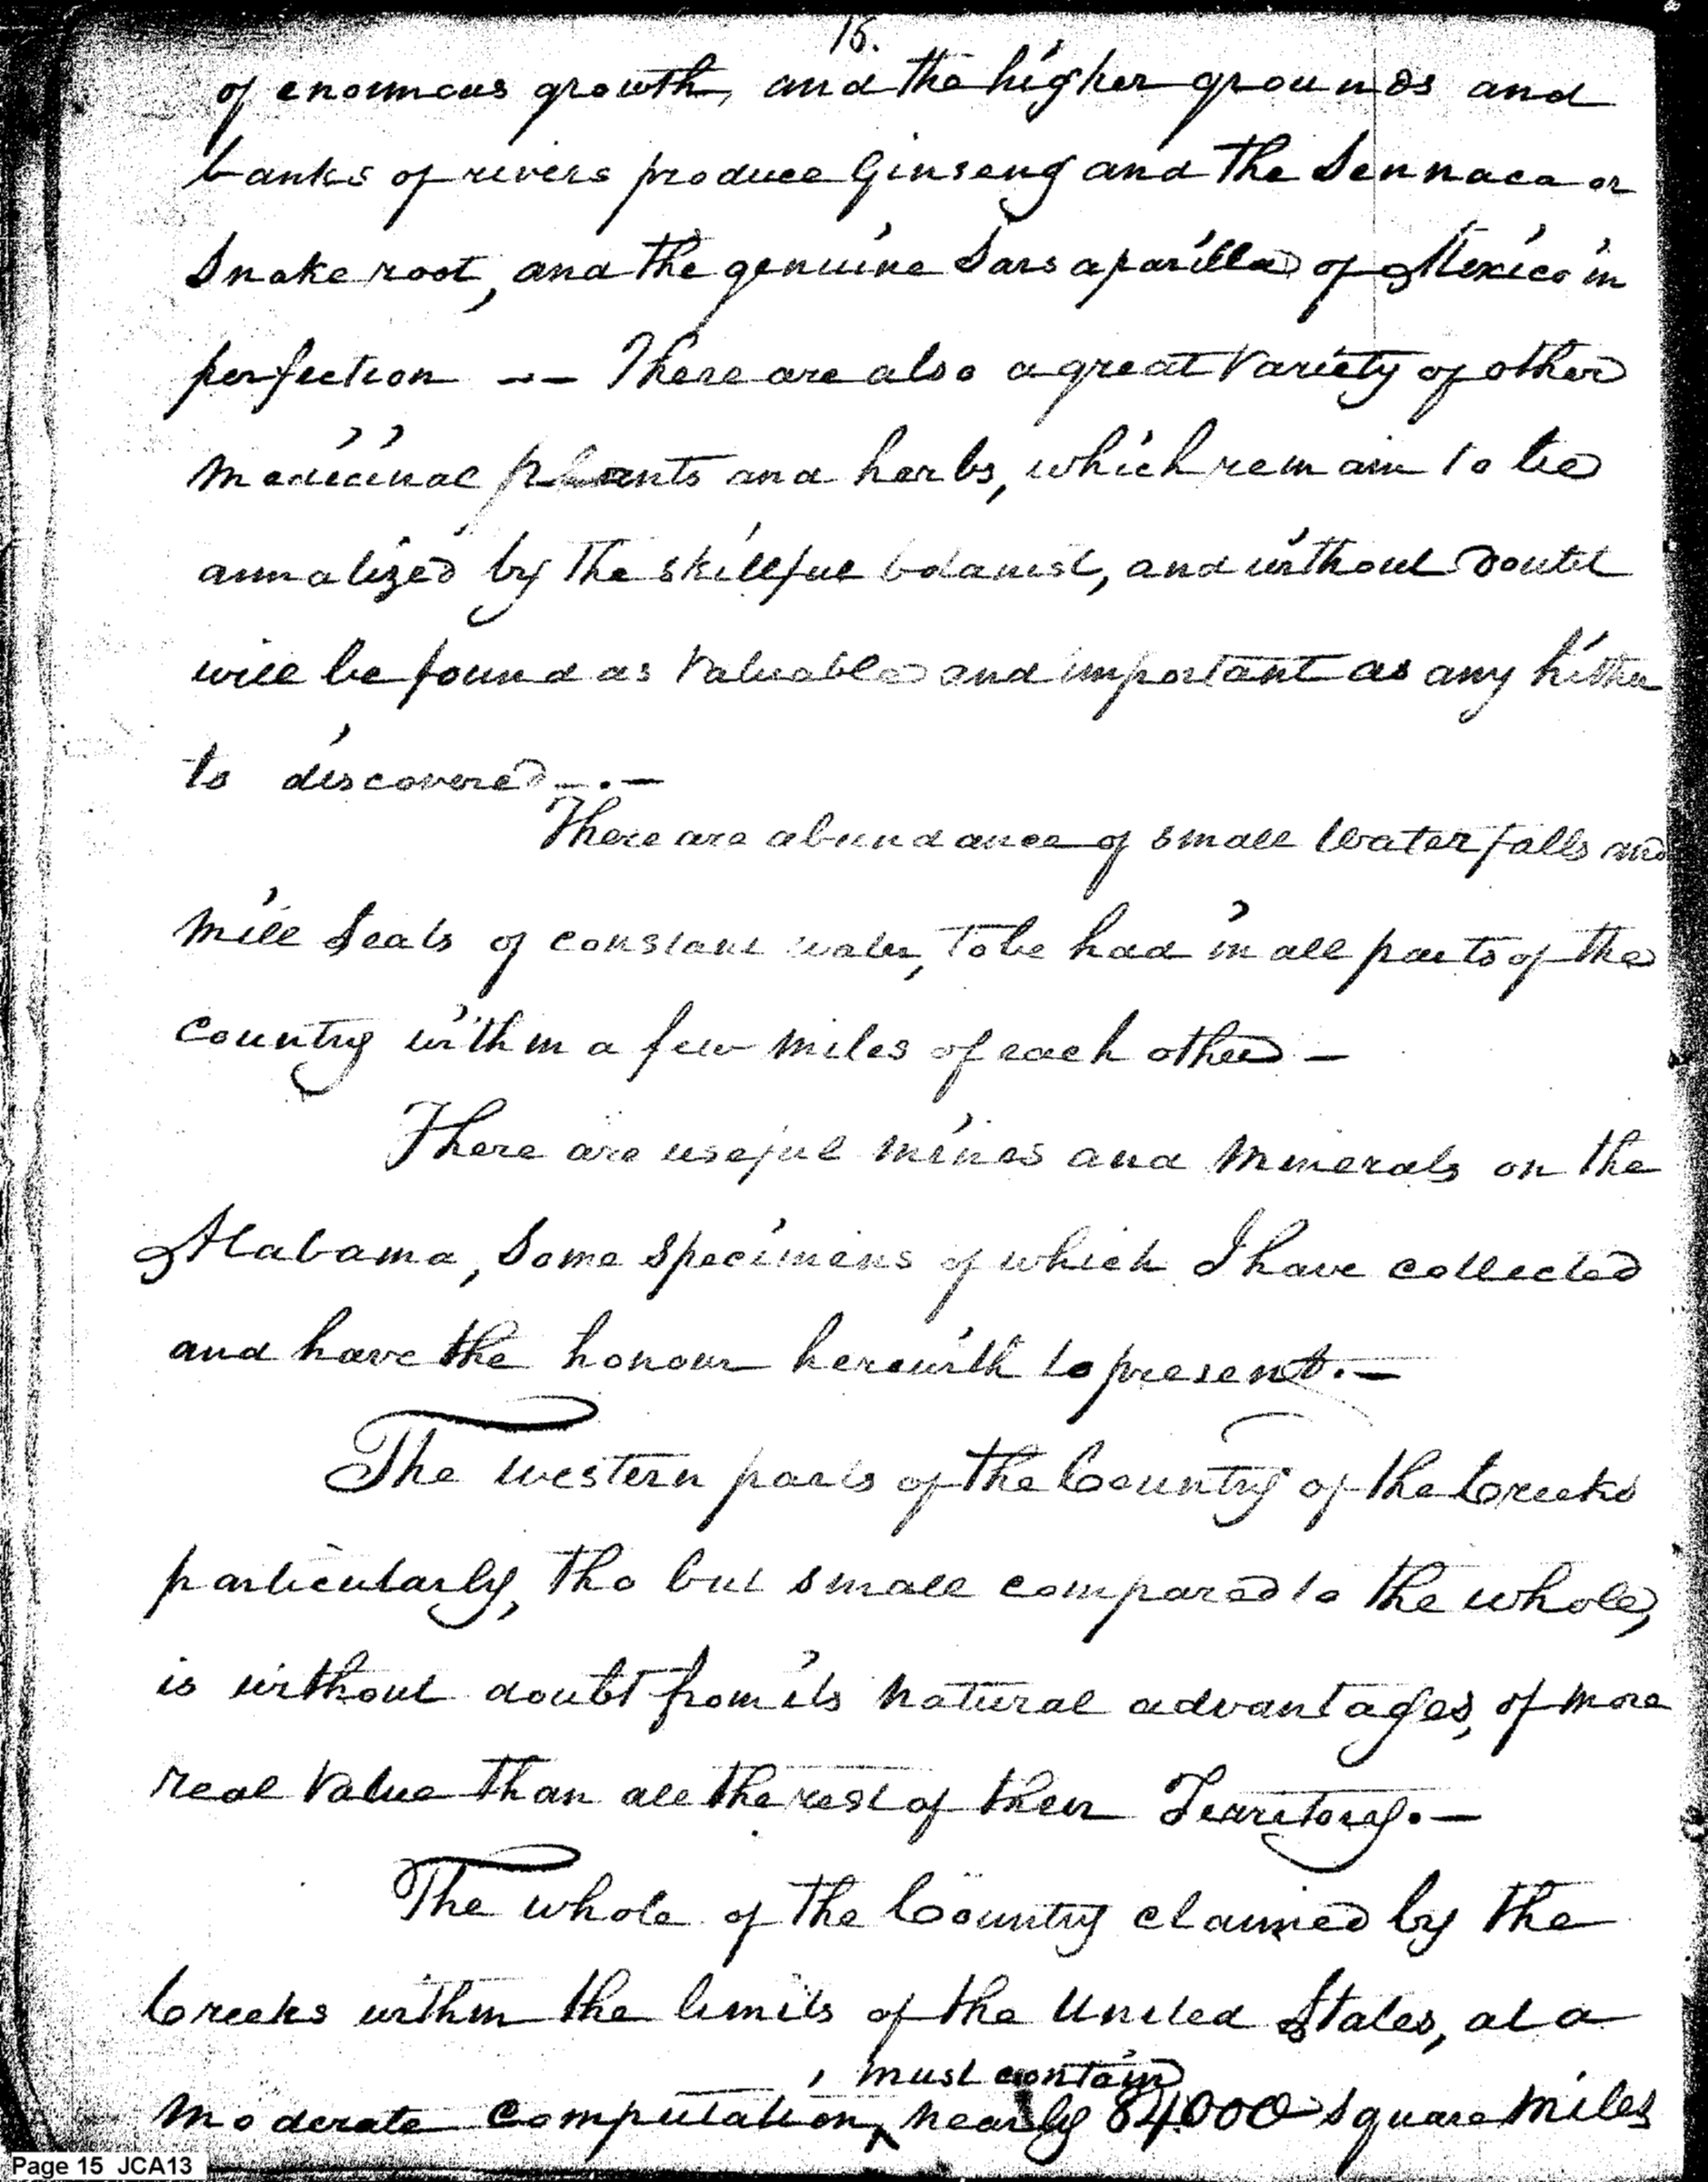 15.
of enormous growth, and the higher grounds and
banks of rivers produce Ginseng and the Sennaca or
Snake root, and the genuine Sarsaparilla of Mexico in
perfection -- There are also a great Variety of other
medicinal plants and herbs, which remain to be
annalized by the skillful botanist, and without doubt
will be found as Valuable and important as any hither
to discovered -.-
There are abundance of small Water falls and
Mill Seats of constant water, to be had in all parts of the
Country within a few miles of each other -
There are useful mines and Minerals on the
Alabama, Some specimens of which I have collected
and have the honour herewith to present. -
The western parts of the Country of the Creeks
particularly, tho but small compared to the whole,
is without doubt from its natural advantages, of more
real Value than all the rest of their Territory. -
The whole of the Country claimed by the
Creeks within the limits of the United States, at a
must contain
moderate computation, ^ nearly 84000 square miles
Page 15 JCA13